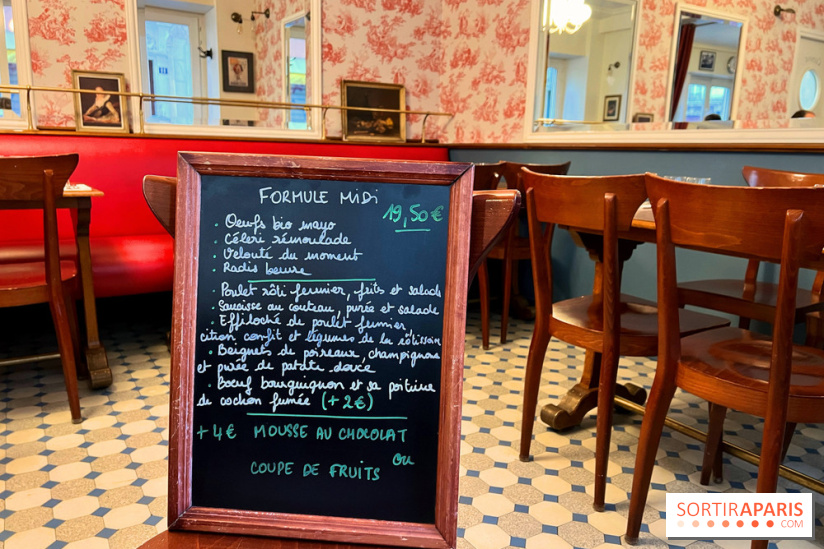 FORMULE MIDI
19,50€
. Oeufs bio mayo
. Céleri rémoulade
. Velouté du moment
. Radis beurre
. Poulet rôti fermier, frits et salade
. Saucisse au couteau, purée et salade
. Effiloché de poulet fumier
citron confit et légumes de la rôtisserie
. Beignets de poireaux, champignons
et purée de patate douce
. Boeuf bourguignon et sa poitrine
de cochon fumée (+2€)
+4€ MOUSSE AU CHOCOLAT
ou
COUPE DE FRUITS
SORTIRAPARIS
.COM